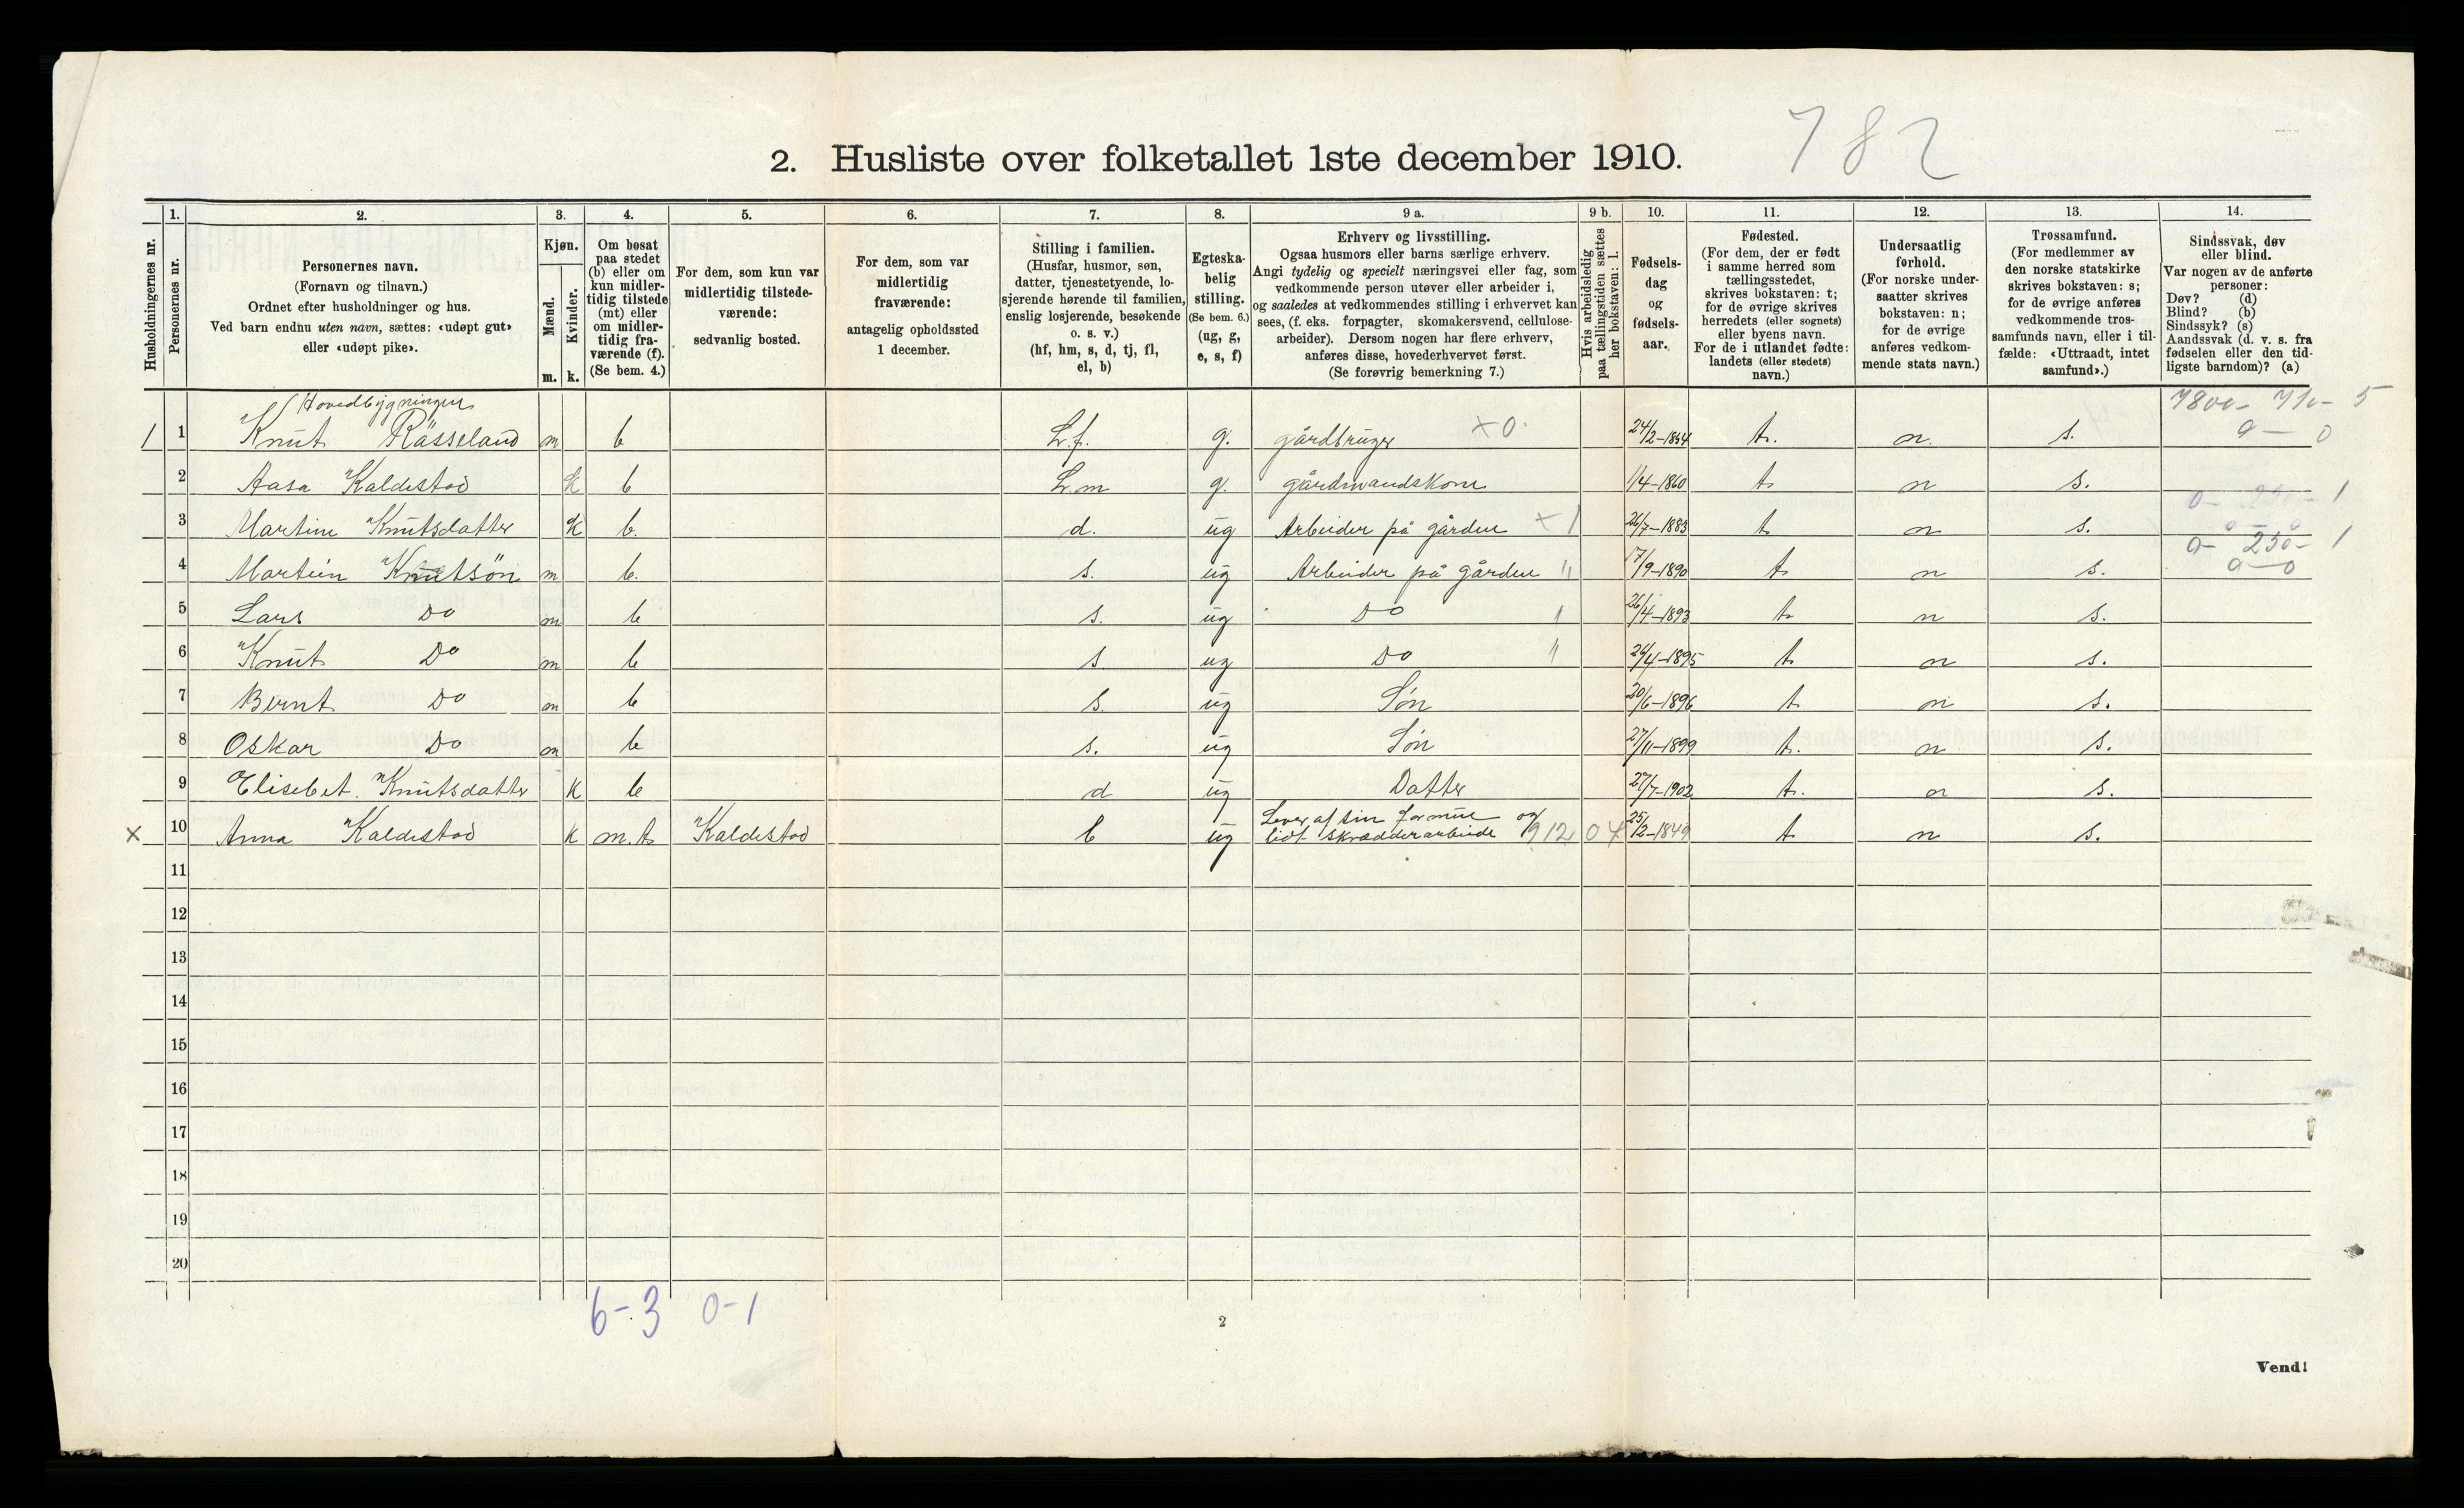 782
2. Husliste over folketallet 1ste december 1910.
1. 2. 3. 4. 5. 6. 7. 8. 9 a. 9 b. 10. 11. 12. 13. 14.
Husholdningernes nr.
Personernes nr.
Personernes navn.
(Fornavn og tilnavn.)
Ordnet efter husholdninger og hus.
Ved barn endnu uten navn, sættes: «udøpt gut»
eller «udøpt pike».
Kjøn.
Mænd.
Kvinder.
m. k.
Om bosat
paa stedet
(b) eller om
kun midler-
tidig tilstede
(mt) eller
om midler-
tidig fra-
værende (f).
(Se bem. 4.)
For dem, som kun var
midlertidig tilstede-
værende:
sedvanlig bosted.
For dem, som var
midlertidig
fraværende:
antagelig opholdssted
1 december.
Stilling i familien.
(Husfar, husmor, søn,
datter, tjenestetyende, lo-
sjerende hørende til familien,
enslig losjerende, besøkende
o. s. v.)
(hf, hm, s, d, tj, fl,
el, b)
Egteska-
belig
stilling.
(Se bem. 6.)
(ug, g,
e, s, f)
Erhverv og livsstilling.
Ogsaa husmors eller barns særlige erhverv.
Angi tydelig og specielt næringsvei eller fag, som
vedkommende person utøver eller arbeider i,
og saaledes at vedkommendes stilling i erhvervet kan
sees, (f. eks. forpagter, skomakersvend, cellulose-
arbeider). Dersom nogen har flere erhverv,
anføres disse, hovederhvervet først.
(Se forøvrig bemerkning 7.)
Hvis arbeidsledig
paa tællingstiden sættes
her bokstaven: l.
Fødsels-
dag
og
fødsels-
aar.
Fødested.
(For dem, der er født
i samme herred som
tællingsstedet,
skrives bokstaven: t;
for de øvrige skrives
herredets (eller sognets)
eller byens navn.
For de i utlandet fødte:
landets (eller stedets)
navn.)
Undersaatlig
forhold.
(For norske under-
saatter skrives
bokstaven: n;
for de øvrige
anføres vedkom-
mende stats navn.)
Trossamfund.
(For medlemmer av
den norske statskirke
skrives bokstaven: s;
for de øvrige anføres
vedkommende tros-
samfunds navn, eller i til-
fælde: «Uttraadt, intet
samfund».)
Sindssvak, døv
eller blind.
Var nogen av de anførte
personer:
Døv? (d)
Blind? (b)
Sindssyk? (s)
Aandssvak (d. v. s. fra
fødselen eller den tid-
ligste barndom)? (a)
Hovedbygningen
7800- 710- 5
1 1 Knut Rässeland m b h.f. g. gårdbruger x 0. 24/2-1854 t. n. s. 0 — 0
2 Aasa Kaldestad k b h.m g. gårdmandskone 1/4-1860 t n s.
3 Martine Knutsdatter k b. d. ug Arbeider på gården x 1 26/7-1883 t n s.
0- 250- 1
4 Martein Knutsön m b. s. ug Arbeider på gården " 17/9-1890 t n s. 0 — 0
5 Lars Do m b s. ug Do 26/4-1893 t n s.
6 Knut Do m b s ug Do " 24/4-1895 t n s.
7 Bernt Do m b s. ug Søn 20/6-1896 t n s.
8 Oskar Do m b s. ug Søn 27/11-1899 t. n s.
9 Elisebet. Knutsdatter k b d ug Datter 27/7-1902 t. n s.
x 10 Anna Kaldestad k m.t Kaldestad b ug Lever af sin formue og
lidt skrædderarbeide 912 04 25/2-1849 t n s.
11
12
13
14
15
16
17
18
19
20
6-3 0-1
2
Vend!